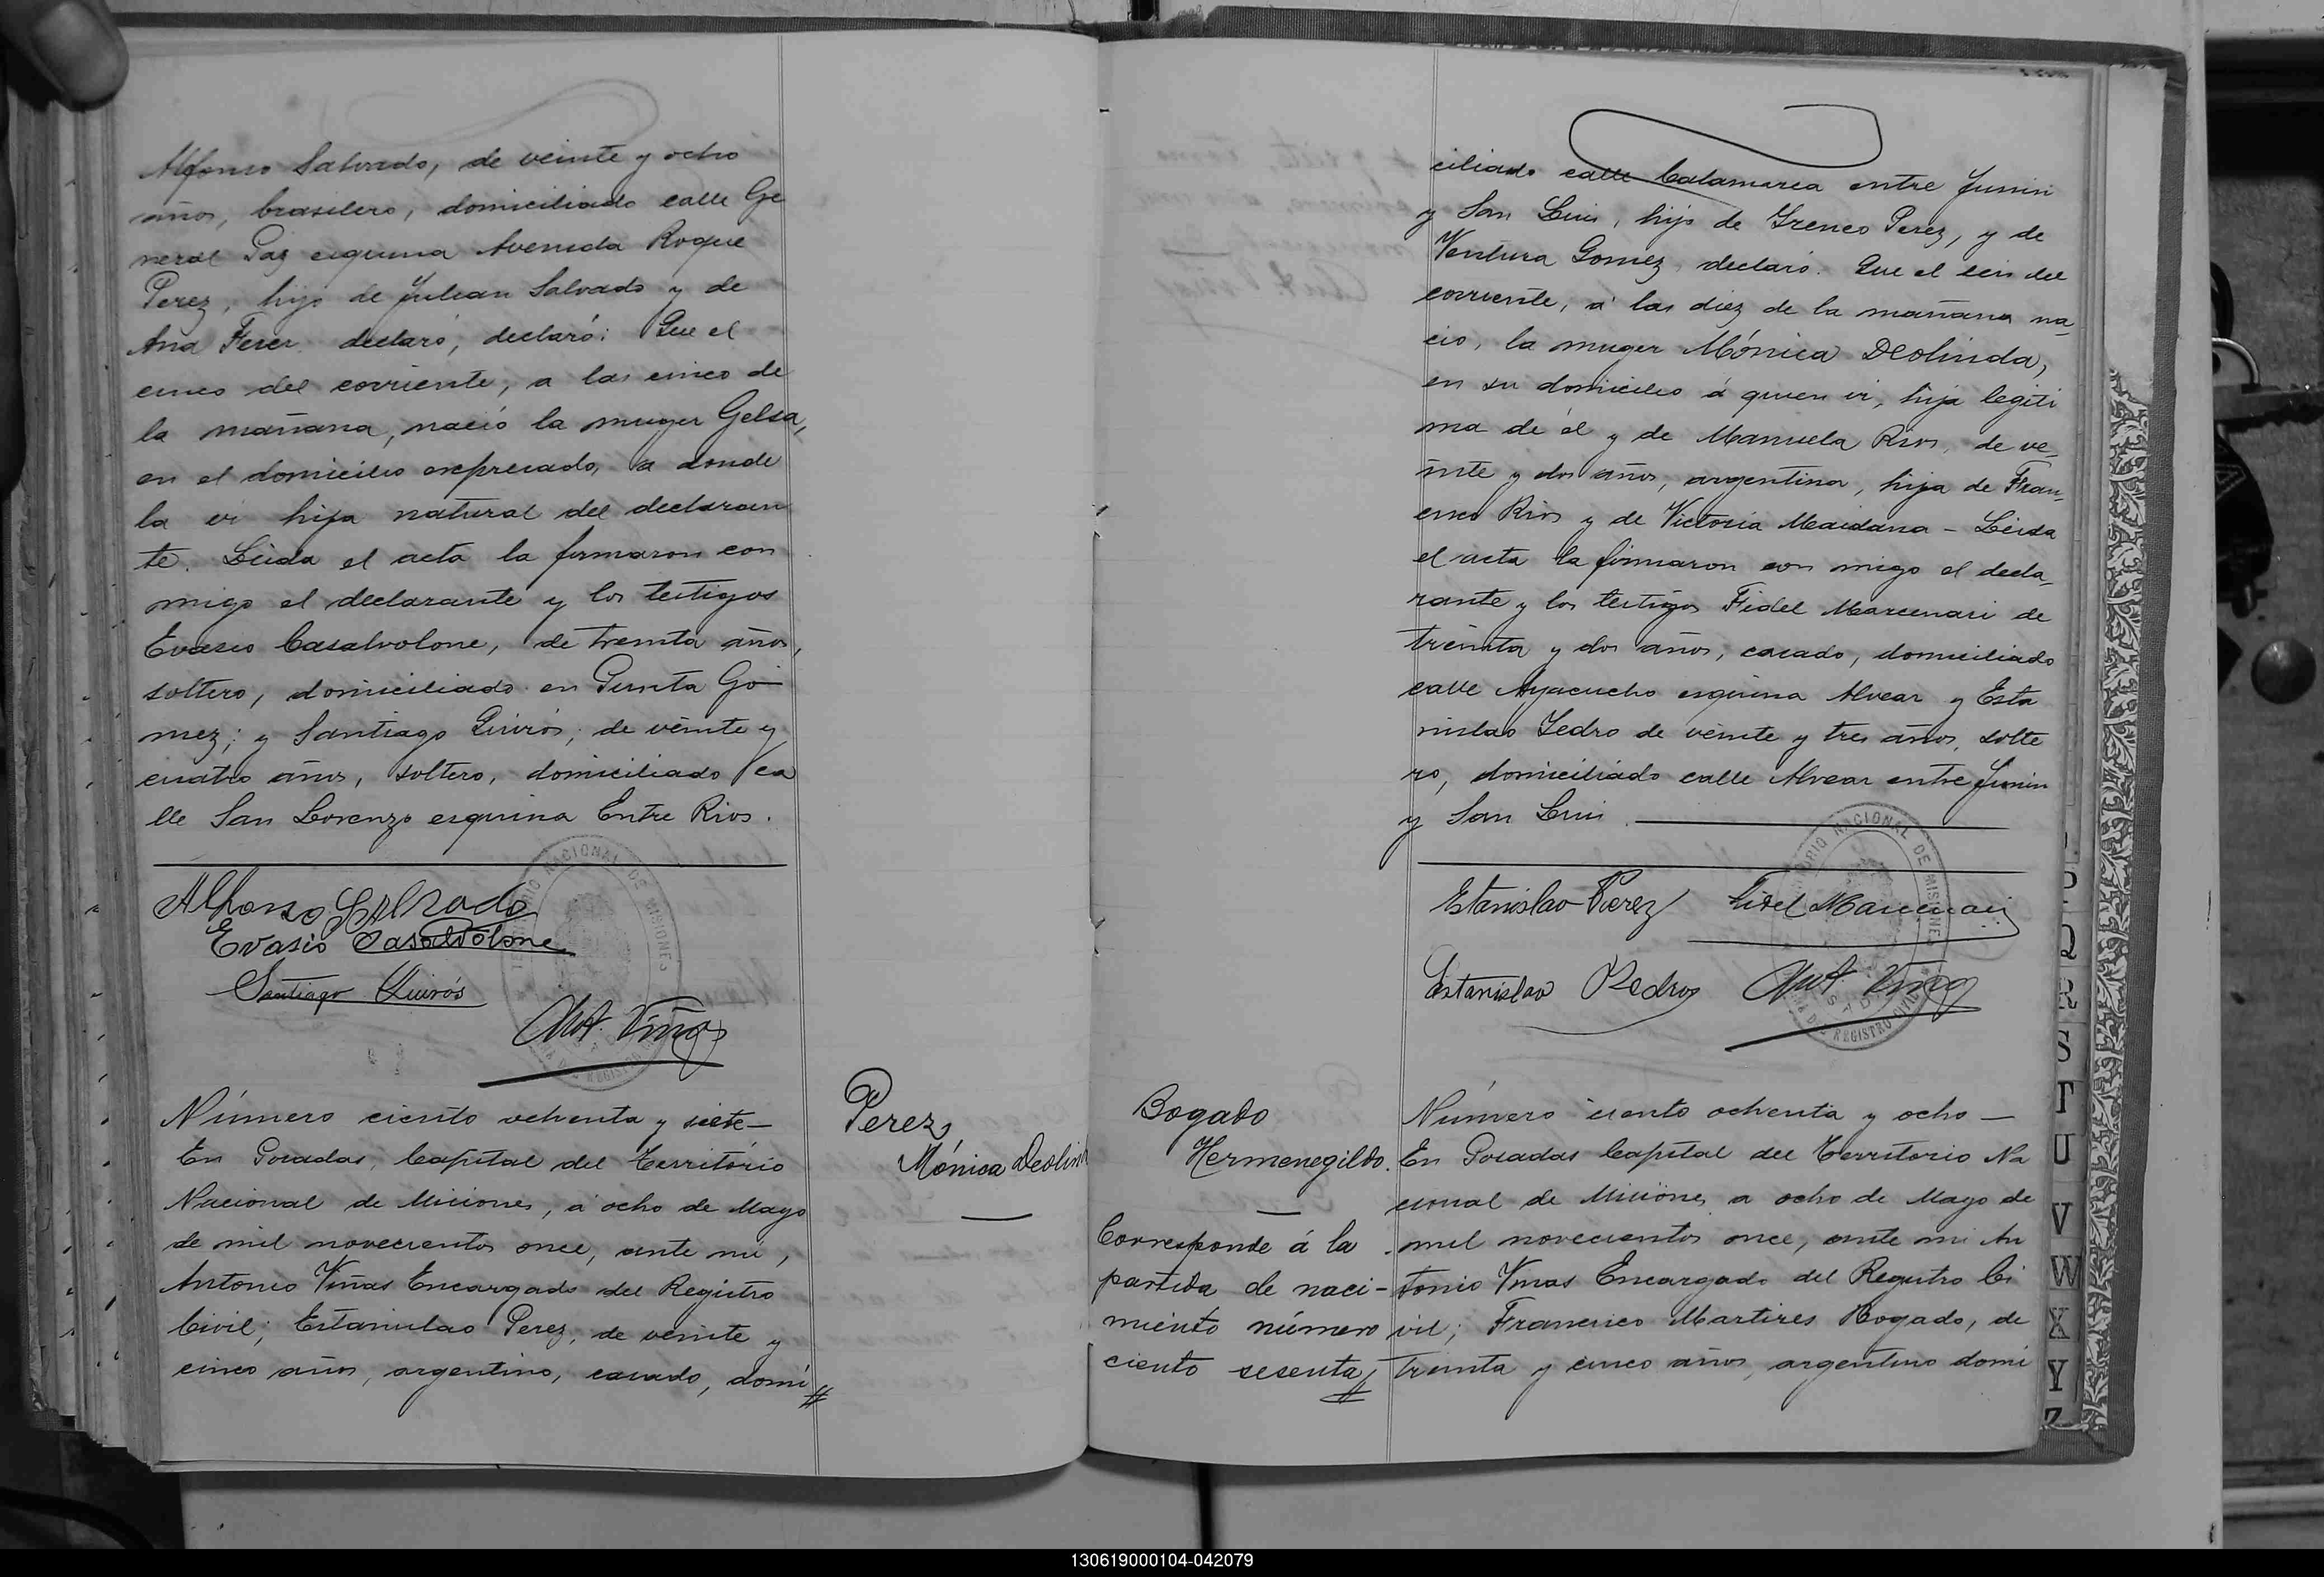 Alfonso Salvado, de veinte y ocho
años, brasilero, domiciliado calle Ge
neral Paz esquina Avenida Roque
Perez, hijo de Julian Salvado y de
Ana Ferer declaró, declaró: Que el
cinco del corriente, a las cinco de
la mañana, nació la muger Gelsa,
en el domicilio expresado, a donde
la vi hija natural del declaran
te. Leida el acta la firmaron con
migo el declarante y los testigos
Evasio Casalvolone, de treinta años,
soltero, domiciliado en Punta Gó
mez; y Santiago Quirós, de veinte y
cuatro años, soltero, domiciliado ca
lle San Lorenzo esquina Entre Rios.
Alfonso Salvado
Evasio Casalvolone
Santiago Quirós
Ant. Viñas
Número ciento ochenta y siete—
En Posadas, Capital del Territorio
Nacional de Misiones, á ocho de Mayo
de mil novecientos once, ante mi,
Antonio Viñas Encargado del Registro
Civil; Estanislao Perez, de veinte y
cinco años, argentino, casado, domi
Perez,
Mónica Deolin
ciliado calle Catamarca entre Junin
y San Luis, hijo de Ireneo Perez, y de
Ventura Gomez, declaró. Que el seis del
corriente, á las diez de la mañana na
ció, la muger Mónica Deolinda,
en su domicilio á quien vi, hija legiti
ma de él y de Manuela Rios, de ve
inte y dos años, argentina, hija de Fran
cisco Rios y de Victoria Maidana - Leida
el acta la firmaron con migo el decla
rante y los testigos Fidel Marcenari de
treinta y dos años, casado, domiciliado
calle Ayacucho esquina Alvear y Esta
nislao Pedro de veinte y tres años, solte
ro, domiciliado calle Alvear entre Junin
y San Luis.
Estanislao Perez Fidel Marcenari
Estanislao Pedro Ant. Viñas
TERRITORIO NACIONAL DE MISIONES
REGISTRO CIVIL
Bogado
Hermenegildo.
Corresponde á la
partida de naci-
miento número
ciento sesenta
Número ciento ochenta y ocho—
En Posadas Capital del Territorio Na
cional de Misiones, a ocho de Mayo de
mil novecientos once, ante mi An
tonio Viñas Encargado del Registro Ci
vil; Francisco Martires Bogado, de
treinta y cinco años, argentino domi
P
Q
R
S
T
U
V
W
X
Y
Z
130619000104-042079